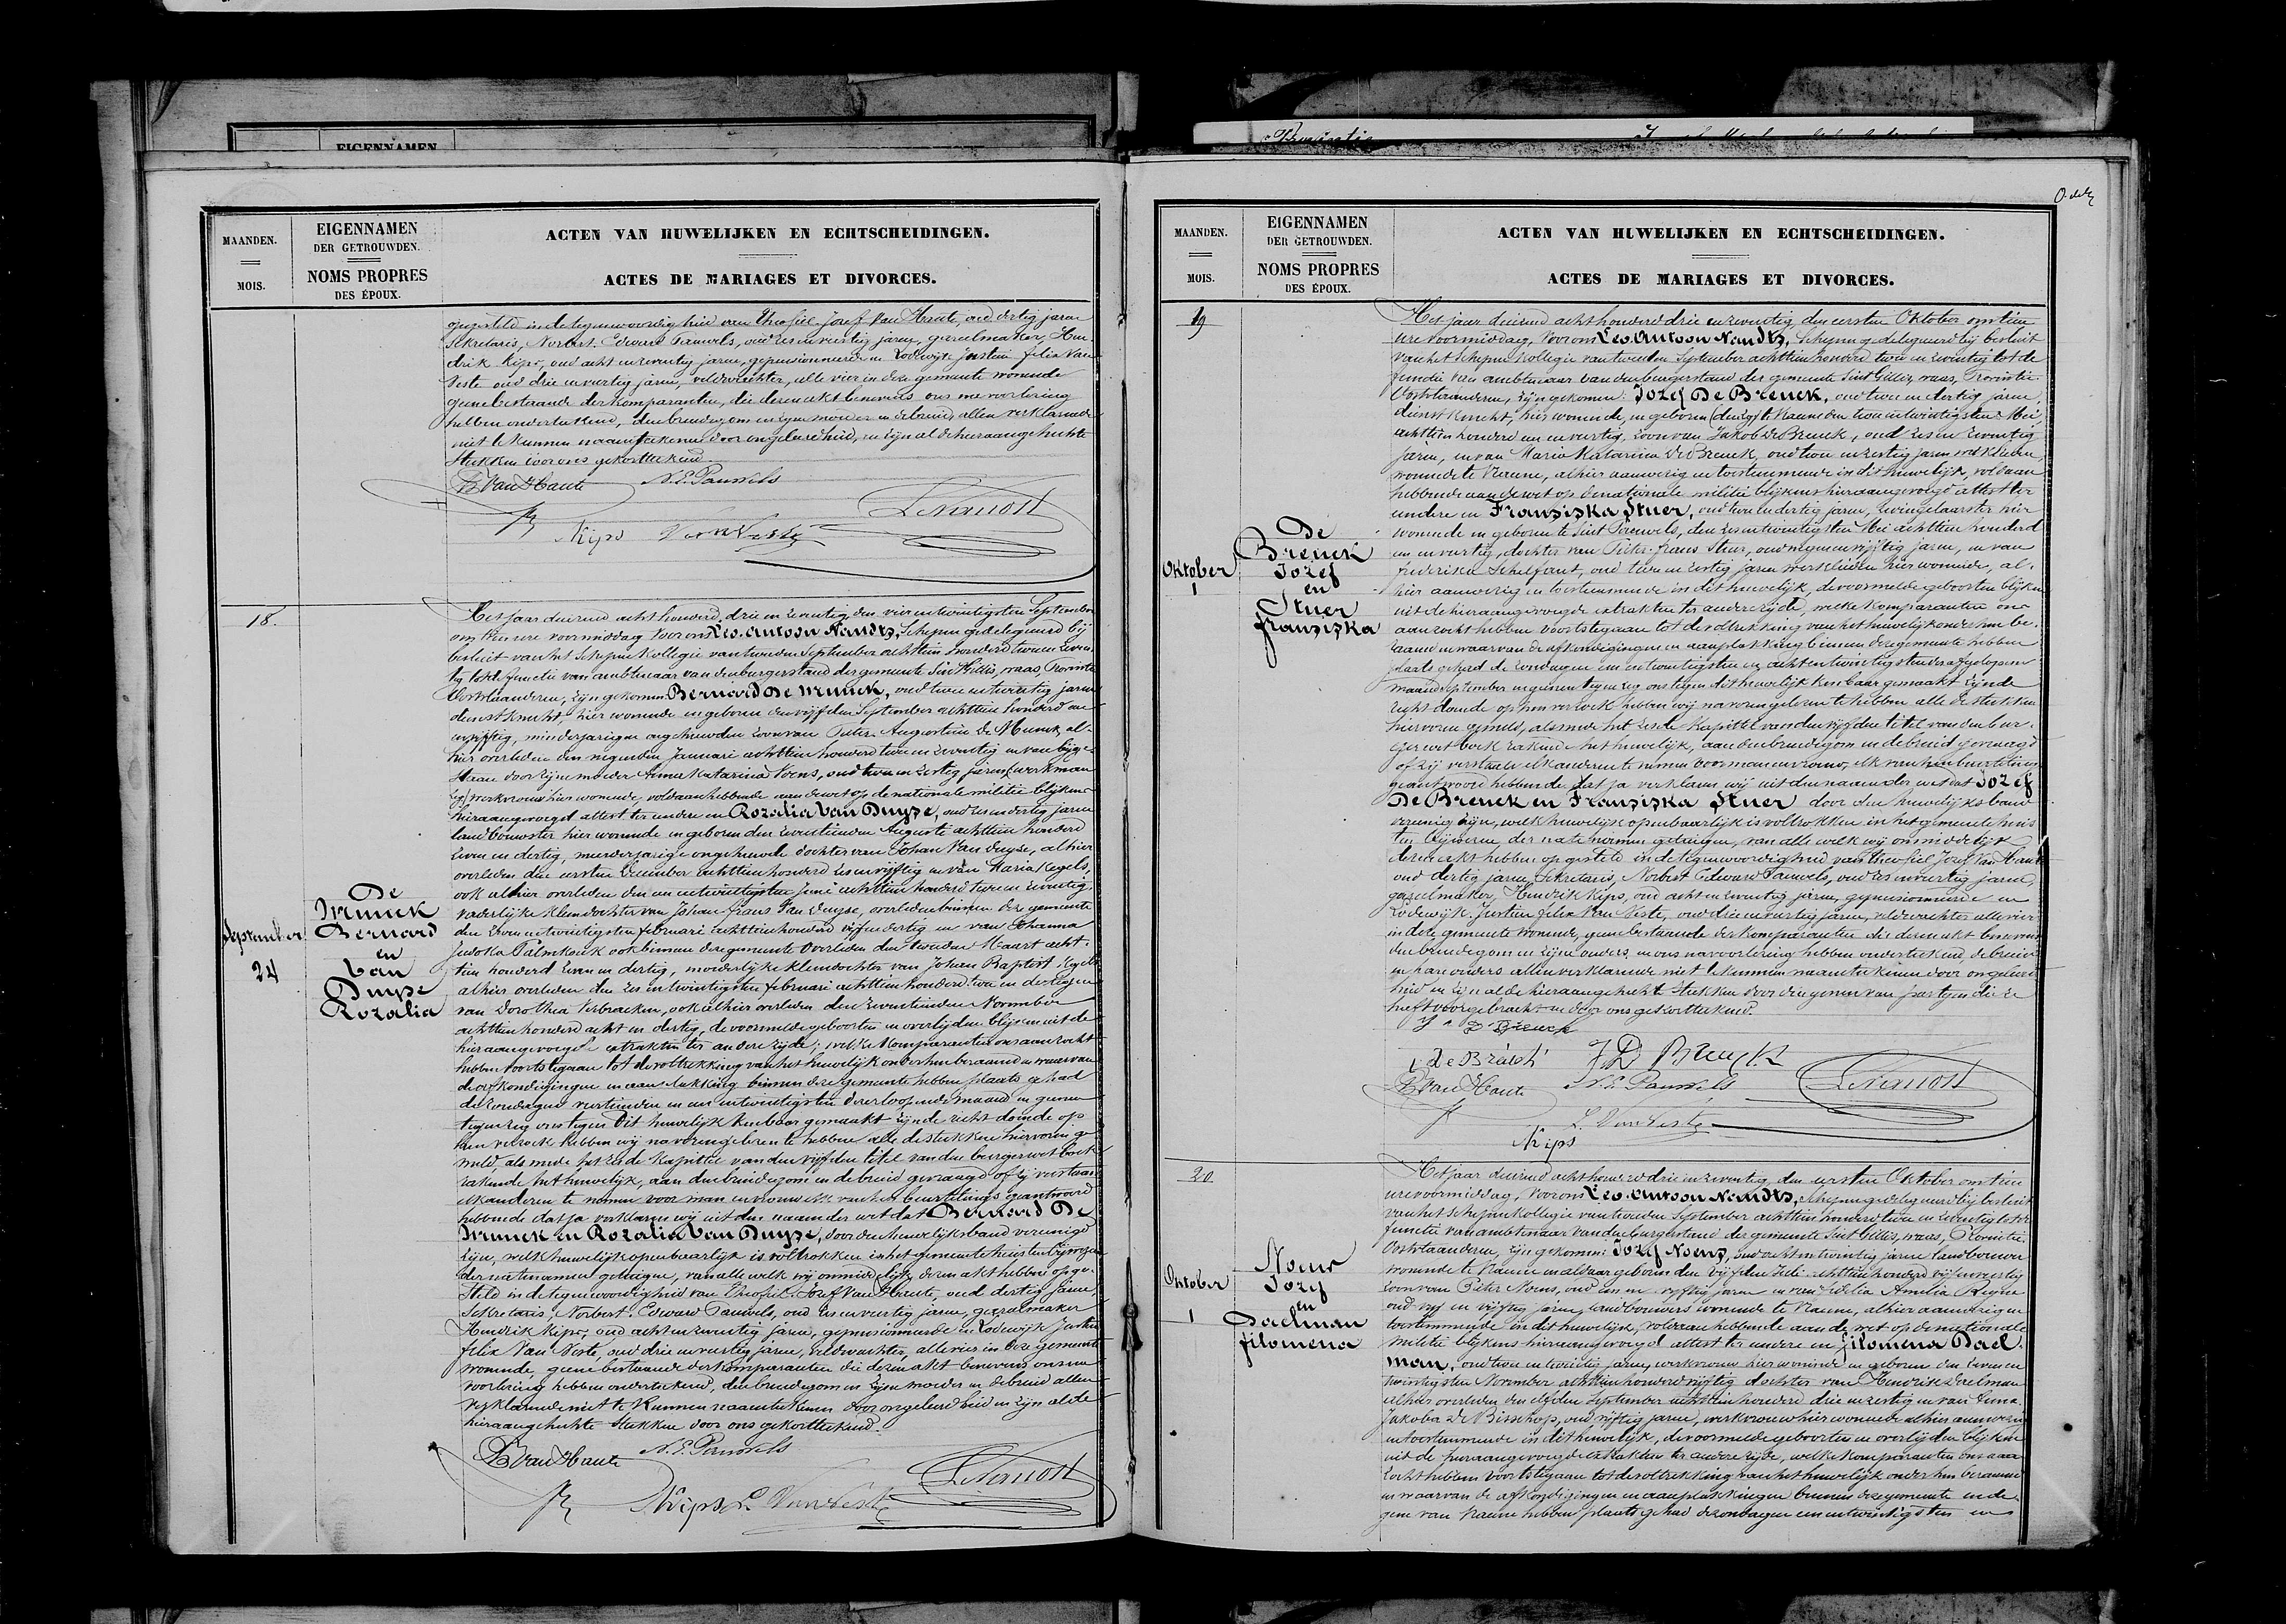 EIGENNAMEN
MAANDEN.
MOIS.
EIGENNAMEN
DER GETROUWDEN.
NOMS PROPRES
DES ÉPOUX.
ACTEN VAN HUWELIJKEN EN ECHTSCHEIDINGEN.
ACTES DE MARIAGES ET DIVORCES.
opgesteld in de tegenwoordigheid van Theofiel Jozef Van Haute, oud dertig jaren
Sekretaris, Norbert Edward Pauwels, oud zes en veertig jaren, gareelmaker, Hen-
drik Kips, oud acht en zeventig jaren, gepensionneerde en Lodewijk Justin Felix Van
Neste oud drie en veertig jaren, veldwachter, alle vier in deze gemeente wonende
geene bestaande der komparanten, die dezen akt benevens ons na voorlezing
hebben onderteekend, den bruidegom en zijne moeder en de bruid allen verklarende
niet te kunnen naamteekenen door ongeleerdheid, en zijn al de hieraangehechte
stukken door ons gekortteekend.
Van Haute N. E. Pauwels
Kips Van Neste
18.
September
24
De
Munck
Bernard
en
Van
Duyse
Rozalia
Het jaar duizend acht honderd drie en zeventig, den vier en twintigsten September
om tien ure voormiddag voor ons Leo Antoon Naudts, Schepen gedelegueerd bij
besluit van het Schepen kollegie van tweeden September achttien honderd twee en zeven-
tig tot de functie van ambtenaar van den burgerstand der gemeente Sint Gillis, waas, Provintie
Oostvlaanderen, zijn gekomen Bernard De Munck, oud twee en twintig jaren
dienstknecht, hier wonende en geboren den vijfden September achttien honderd een
en vijftig, minderjarigen ongehuwden zoon van Pieter Augustin De Munck, al-
hier overleden den negenden Januari achttien honderd twee en zeventig en van bijge-
staan door zijne moeder Anna Katarina Noens, oud twee en zestig jaren (werkman
zeg) werkvrouw hier wonende, voldaan hebbende aan de wet op de nationale militie blijkens
hieraangevoegd attest ter andere en Rozalia Van Duyse, oud zes en dertig jaren
landbouwster hier wonende en geboren den zeventienden Augusti achttien honderd
zeven en dertig, meerderjarige ongehuwde dochter van Johan Van Duyse, alhier
overleden den eersten December achttien honderd zes en vijftig en van Maria Kegels,
ook alhier overleden den een en twintigsten Juni achttien honderd twee en zeventig,
vaderlijke kleindochter van Johan Frans Van Duyse, overleden binnen deze gemeente
den zeven en twintigsten februari achttien honderd vijf en dertig en van Johanna
Judoka Palinkouk ook binnen deze gemeente overleden den tweeden Maart acht-
tien honderd zeven en dertig, moederlijke kleindochter van Johan Baptist Kegels
alhier overleden den zes en twintigsten februari achttien honderd twee en dertig en
van Dorothea Verbraeken, ook alhier overleden den zeventienden November
achttien honderd acht en dertig, de voormelde geboorten en overlijdens blijken uit de
hieraangevoegde extrakten ter andere zijde; welke komparanten ons aanzocht
hebben voorts te gaan tot de voltrekking van het huwelijk onder hen beraamd en waarvan
de afkondigingen en aanplakking binnen deze gemeente hebben plaats gehad
de zondagen veertienden en een en twintigsten dezer loopende maand en geenen
tegenzeg ons tegen dit huwelijk kenbaar gemaakt zijnde recht doende op
hun verzoek hebben wij na voorengelezen te hebben alle de stukken hiervoren ge-
meld, alsmede het zesde kapittel van den vijfden titel van den burger wetboek
rakende het huwelijk, aan den bruidegom en de bruid gevraagd of zij verstaan
elkanderen te nemen voor man en vrouw elk van hen beurtelings geantwoord
hebbende dat ja verklaren wij uit den naam der wet dat Bernard De
Munck en Rozalia Van Duyse, door den huwelijksband vereenigd
zijn, welk huwelijk openbaarlijk is voltrokken in het gemeentehuis ten bijwezen
der natenoemen getuigen, van alle welk wij onmiddelijk dezen akt hebben opge-
steld in de tegenwoordigheid van Theofiel Jozef Van Haute, oud dertig jaren
Sekretaris, Norbert Edward Pauwels, oud zes en veertig jaren, gareelmaker
Hendrik Kips, oud acht en zeventig jaren, gepensionneerde en Lodewijk Justin
Felix Van Neste, oud drie en veertig jaren, veldwachter, alle vier in deze gemeente
wonende, geene bestaande der komparanten die dezen akt benevens ons na
voorlezing hebben onderteekend, den bruidegom en zijne moeder en de bruid allen
verklarende niet te kunnen naamteekenen door ongeleerdheid en zijn al de
hieraangehechte stukken door ons gekortteekend.
Van Haute N. E. Pauwels
Kips L. Van Neste
MAANDEN.
MOIS.
EIGENNAMEN
DER GETROUWDEN.
NOMS PROPRES
DES ÉPOUX.
ACTEN VAN HUWELIJKEN EN ECHTSCHEIDINGEN.
ACTES DE MARIAGES ET DIVORCES.
19
Oktober
1
De
Breuck
Jozef
en
Stuer
Fransiska
Het jaar duizend acht honderd drie en zeventig, den eersten Oktober om tien
ure voormiddag, voor ons Leo Antoon Naudts, Schepen gedelegueerd bij besluit
van het Schepen kollegie van tweeden September achttien honderd twee en zeventig tot de
functie van ambtenaar van den burgerstand der gemeente Sint Gillis, waas, Provintie
Oostvlaanderen, zijn gekomen: Jozef De Breuck, oud twee en dertig jaren,
dienstknecht, hier wonende, en geboren te Vracene den twee en twintigsten Mei
achttien honderd een en veertig, zoon van Jakob De Breuck, oud zes en zeventig
jaren, en van Maria Katarina De Breuck, oud twee en zestig jaren werklieden,
wonende te Vracene, alhier aanwezig en toestemmende in dit huwelijk, voldaan
hebbende aan de wet op de nationale militie blijkens hieraangevoegd attest ter
andere en Fransiska Stuer, oud twee en dertig jaren, zwingelaarster hier
wonende en geboren te Sint Pauwels, den zes en twintigsten Mei achttien honderd
een en veertig, dochter van Pieter frans Stuer, oud negen en vijftig jaren, en van
frederika Schelfaut, oud twee en zestig jaren werklieden hier wonende, al-
hier aanwezig en toestemmende in dit huwelijk, de voormelde geboorten blijken
uit de hieraangevoegde extrakten ter andere zijde, welke komparanten ons
aanzocht hebben voorts te gaan tot de voltrekking van het huwelijk onder hen be-
raamd en waarvan de afkondigingen en aanplakking binnen deze gemeente hebben
plaats gehad de zondagen een en twintigsten en acht en twintigsten der afgeloopene
maand September en geenen tegenzeg ons tegen dit huwelijk kenbaar gemaakt zijnde
recht doende op hun verzoek hebben wij na voorengelezen te hebben alle de stukken
hiervoren gemeld, alsmede het zesde kapittel van den vijfden titel van den bur-
ger wetboek rakende het huwelijk, aan den bruidegom en de bruid gevraagd
of zij verstaan elkanderen te nemen voor man en vrouw, elk van hen beurtelings
geantwoord hebbende dat ja verklaren wij uit den naam der wet dat Jozef
De Breuck en Fransiska Stuer door den huwelijksband
vereenigd zijn, welk huwelijk openbaarlijk is voltrokken in het gemeentehuis
ten bijwezen der natenoemen getuigen, van alle welk wij onmiddelijk
dezen akt hebben opgesteld in de tegenwoordigheid van Theofiel Jozef Van Haute
oud dertig jaren, Sekretaris, Norbert Edward Pauwels, oud zes en veertig jaren,
gareelmaker, Hendrik Kips, oud acht en zeventig jaren, gepensionneerde en
Lodewijk Justin Felix Van Neste, oud drie en veertig jaren, veldwachter alle vier
in deze gemeente wonende, geene bestaande der komparanten die dezen akt benevens
den bruidegom en zijne ouders, en ons na voorlezing hebben onderteekend, de bruid
en hare ouders allen verklarende niet te kunnen naamteekenen door ongeleerd-
heid en zijn al de hieraangehechte stukken door degenen van partijen die ze
heeft voorgebracht en door ons gekortteekend.
De Breuck
J D Breuck
Van Haute N. E. Pauwels
L. Van Neste
Kips
20.
Oktober
1
Noens
Jozef
en
Daelman
filomena
Het jaar duizend acht honderd drie en zeventig, den eersten Oktober om tien
ure voormiddag, voor ons Leo Antoon Naudts, Schepen gedelegueerd bij besluit
van het Schepen kollegie van tweeden September achttien honderd twee en zeventig tot de
functie van ambtenaar van den burgerstand der gemeente Sint Gillis, waas, Provintie
Oostvlaanderen, zijn gekomen: Jozef Noens, oud acht en twintig jaren landbouwer
wonende te Vracene en aldaar geboren den vijfden Juli achttien honderd vijf en veertig
zoon van Pieter Noens, oud en vijftig jaren en van Amelia
oud en vijftig jaren, landbouwers wonende te Vracene, alhier aanwezig en
toestemmende in dit huwelijk, voldaan hebbende aan de wet op de nationale
militie blijkens hieraangevoegd attest ter andere en filomena Dael-
man, oud twee en twintig jaren, werkvrouw hier wonende en geboren den zeven en
twintigsten November achttien honderd vijftig dochter van Hendrik Daelman
alhier overleden den elfden September achttien honderd drie en zestig en van Anna
Jakoba De Bisschop, oud vijftig jaren, werkvrouw hier wonende alhier aanwezig
en toestemmende in dit huwelijk, de voormelde geboorten en overlijden blijken
uit de hieraangevoegde extrakten ter andere zijde, welke komparanten ons aan-
zocht hebben voorts te gaan tot de voltrekking van het huwelijk onder hen beraamd
en waarvan de afkondigingen en aanplakkingen binnen deze gemeente en de-
gene van Vracene hebben plaats gehad de zondagen een en twintigsten en